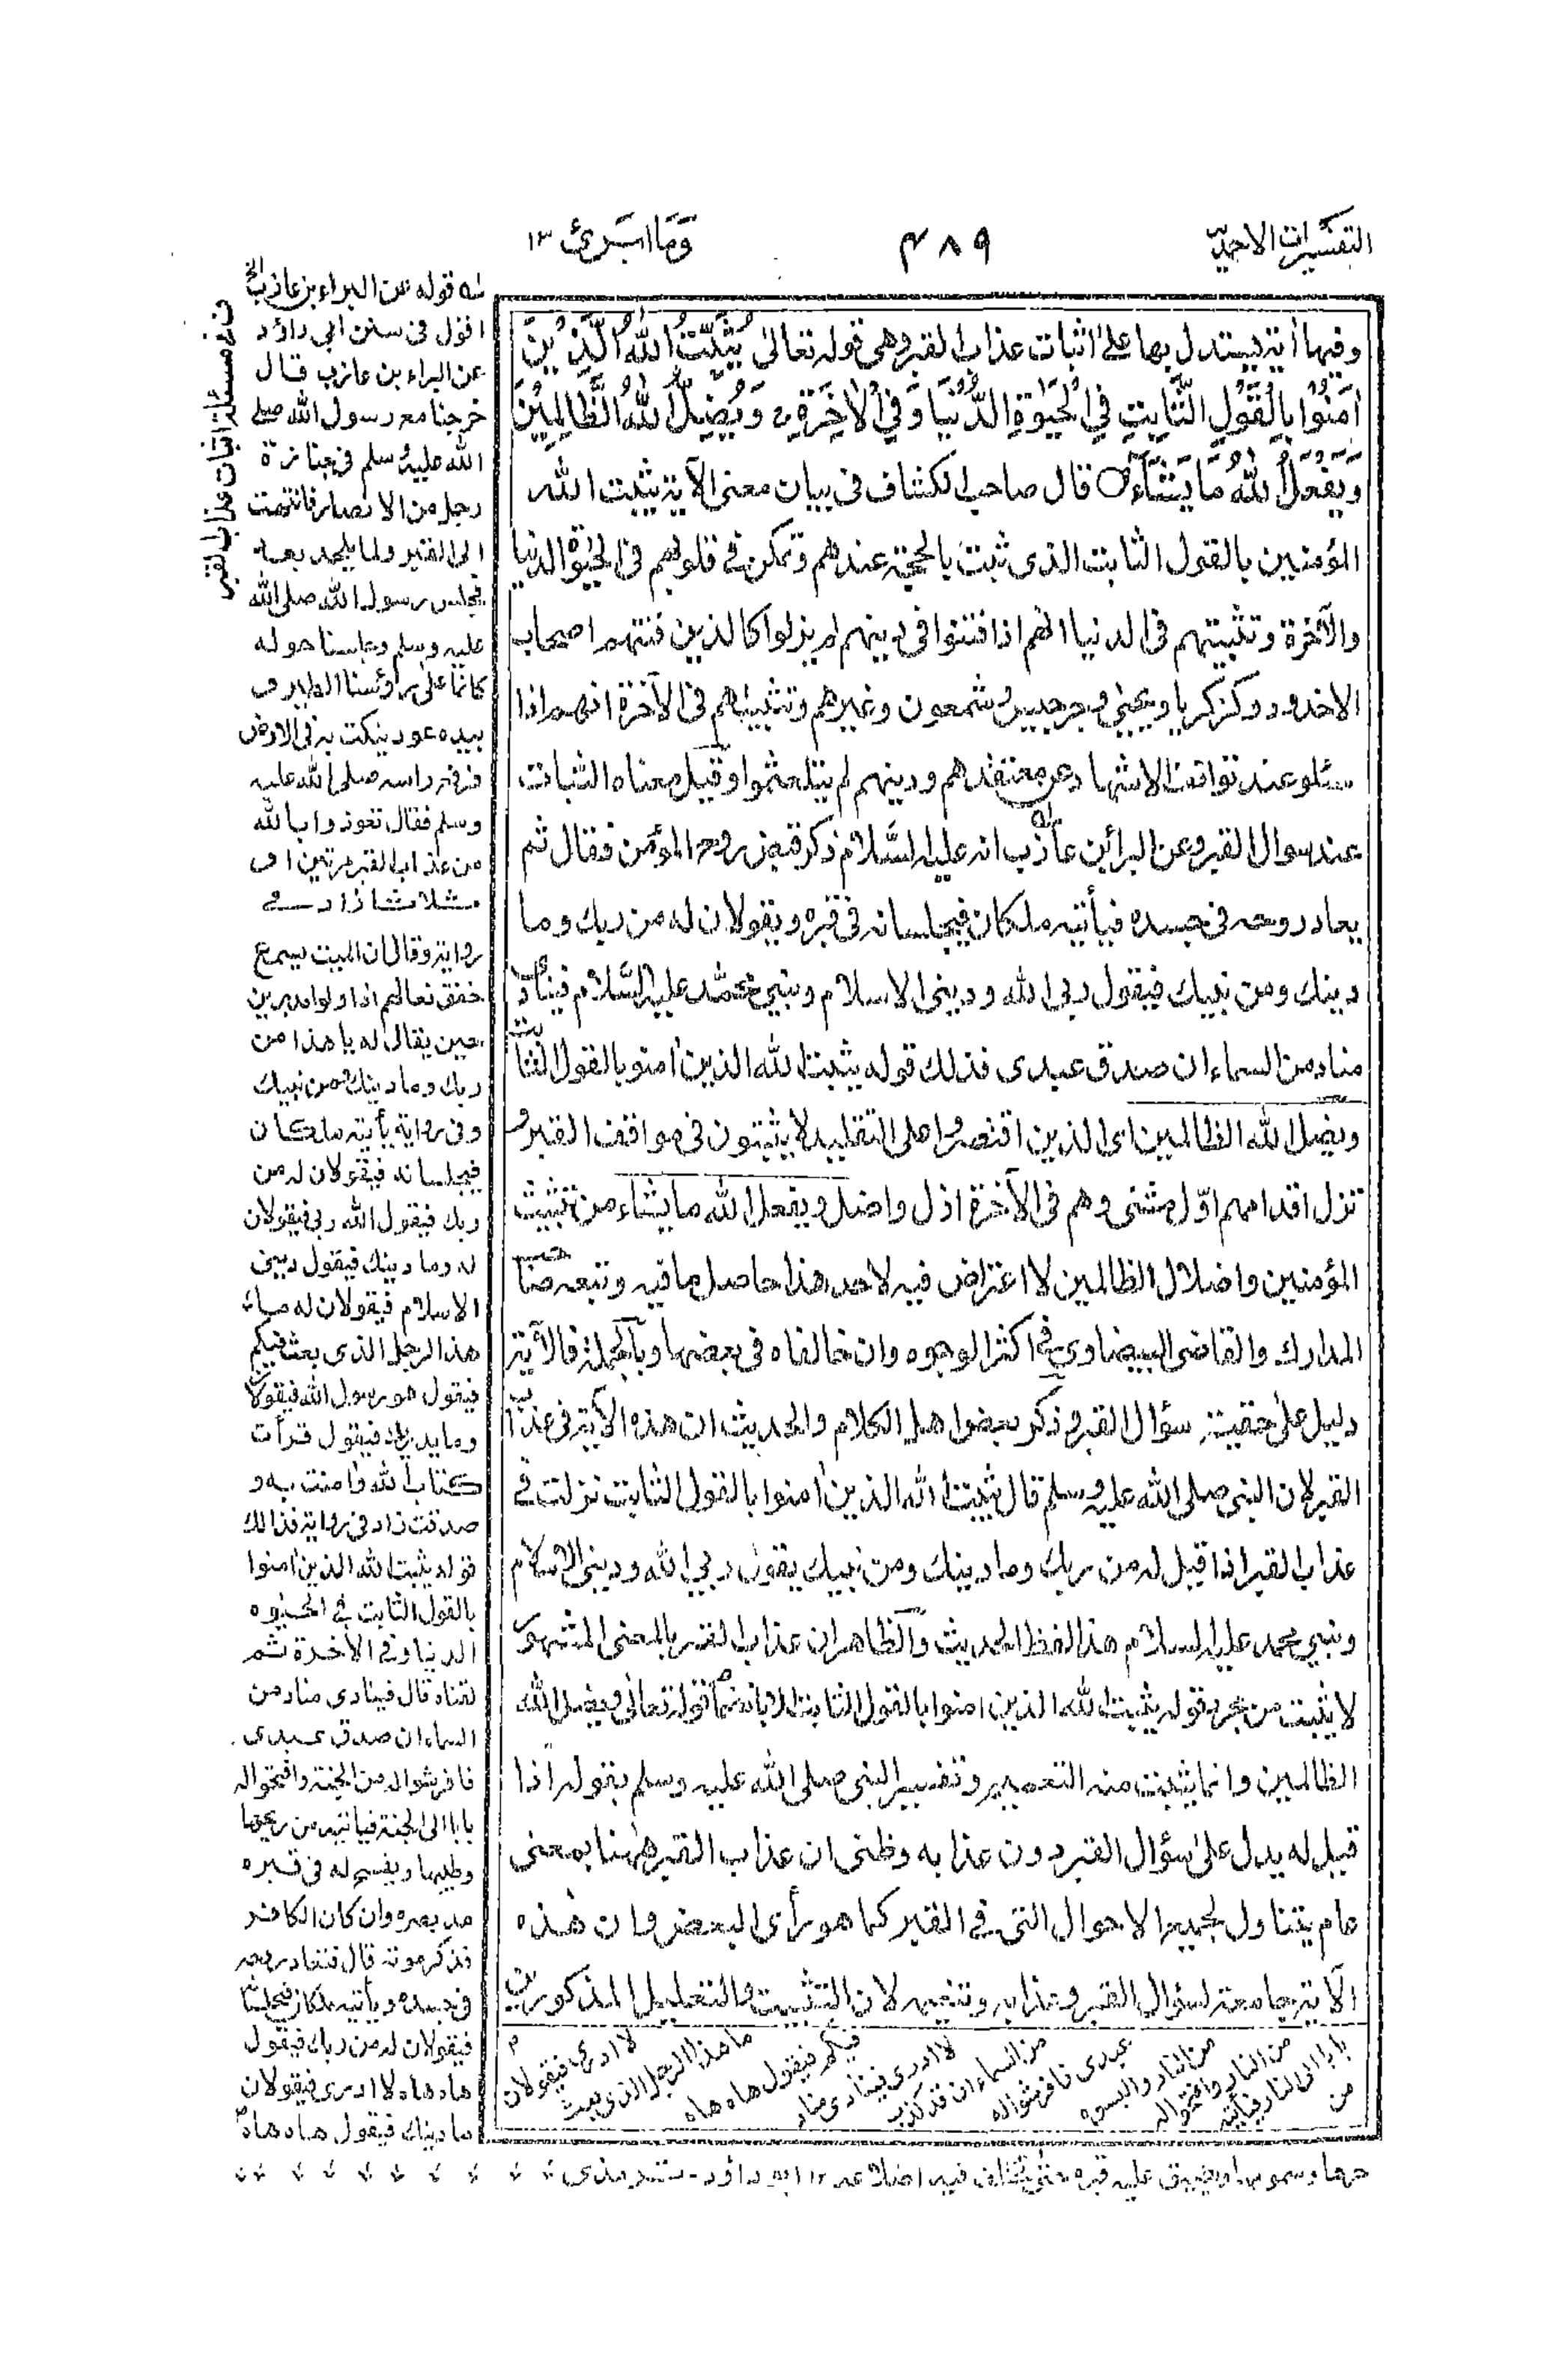 التفسيرات الاحمديّة
٤٨٩
وَمَا اُبَرِّئُ ١٣
وفيها أية يستدل بها على اثبات عذاب القبر وهى قوله تعالى يُثَبِّتُ اللّٰهُ الَّذِيْنَ
اٰمَنُوْا بِالْقَوْلِ الثَّابِتِ فِي الْحَيٰوةِ الدُّنْيَا وَفِي الْاٰخِرَةِ وَيُضِلُّ اللّٰهُ الظّٰالِمِيْنَ
وَيَفْعَلُ اللّٰهُ مَا يَشَآءُ قال صاحب الكشاف فى بيان معنى الآية يثبت الله
المؤمنين بالقول الثابت الذى ثبت بالحجة عندهم وتمكن فى قلوبهم فى الحيوة الدنيا
والآخرة وتثبيتهم فى الدنيا انهم اذا فتنوا فى دينهم لم يزلوا كالذين فتنهم اصحاب
الاخدود وكزكريا ويحيى وجرجيس وشمعون وغيرهم وتثبيتهم فى الآخرة انهم اذا
سئلو عند تواقف الاشهاد عن معتقدهم ودينهم لم يتلعثموا وقيل معناه الثبات
عند سوال القبر وعن البراء بن عازب انه عليه السَّلام ذكر قبض روح المؤمن فقال ثم
يعاد روحه فى جسده فيأتيه ملكان فيجلسانه فى قبره ويقولان له من ربك وما
دينك ومن نبيك فيقول ربى الله ودينى الاسلام ونبيى محمَّد عليه السَّلام فينادى
مناد من السماء ان صدق عبدى فذلك قوله يثبت الله الذين اٰمنو بالقول الثابت
ويضل الله الظالمين اى الذين اقتصروا على التقليد لا يثبتون فى مواقف القبر و
تزل اقدامهم اوّل مشئى وهم فى الآخرة اذل واضل ويفعل الله ما يشاء من تثبيت
المؤمنين واضلال الظالمين لا اعتراض فيه لاحد هذا حاصل ما فيه وتبعه صاحب
المدارك والقاضى البيضاوى فى اكثر الوجوه وان خالفاه فى بعضها وبالجملة فالآية
دليل على حقيت سؤال القبر وذكر بعض اهل الكلام والحديث ان هذه الآية فى عذاب
القبر لان النبى صلى الله عليه وسلم قال يثبت الله الذين اٰمنوا بالقول الثابت نزلت فى
عذاب القبر اذا قيل له من ربك وما دينك ومن نبيك يقول ربى الله ودينى الاسلام
ونبيى محمد عليه السلام هذا لفظ الحديث والظاهر ان عذاب القبر بالمعنى المشهور
لا يثبت من مجرد قوله يثبت الله الذين امنوا بالقول الثابت الا بانضمام قوله تعالى ويضل الله
الظالمين وانما يثبت منه التعميم وتفسير النبى صلى الله عليه وسلم بقوله اذا
قيل له يدل على سؤال القبر دون عذابه وظنى ان عذاب القبر هٰهنا بمعنى
عام يتناول لجميع الاحوال التى فى القبر كما هو رأى البعض وان هٰذه
الآية جامعة لسؤال القبر وعذابه وتنعيمه لان التثبيت والتعليل المذكورين
ف فى مسئلة اثبات عذاب القبر
له قوله عن البراء بن عازب الخ
اقول فى سنن ابى داؤد
عن البراء بن عازب قال
خرجنا مع رسول الله صلى
الله عليه وسلم فى جنازة
رجل من الانصار فانتهت
الى القبر ولما يلحد بعد
فجلس رسول الله صلى الله
عليه وسلم وجلسنا حوله
كانما على رؤسنا الطير وفى
بيده عود ينكت به فى الارض
فرفع راسه صلى الله عليه
وسلم فقال تعوذوا بالله
من عذاب القبر مرتين او
ثلاثا زاد فى
رواية وقال ان الميت يسمع
خفق نعالهم اذا ولوا مدبرين
حين يقال له يا هذا من
ربك وما دينك ومن نبيك
وفى رواية يأتيه ملكان
فيجلسانه فيقولان له من
ربك فيقول الله ربى فيقولان
له وما دينك فيقول دينى
الاسلام فيقولان له ما
هذا الرجل الذى بعث فيكم
فيقول هو رسول الله فيقولان
وما يدريك فيقول قرأت
كتاب الله واٰمنت به و
صدقت زاد فى رواية فذالك
قوله يثبت الله الذين اٰمنوا
بالقول الثابت فى الحيٰوه
الدنيا وفى الاٰخرة ثم
لقناه قال فينادى مناد من
السماء ان صدق عبدى
فافرشواله من الجنة وافتحواله
بابا الى الجنة فيأتيه من ريحها
وطيبها ويفسح له فى قبره
مد بصره وان كان الكافر
فذكر موته قال فتعاد روحه
فى جسده ويأتيه ملكان فيجلسانه
فيقولان له من ربك فيقول
هاه هاه لا ادرى فيقولان
ما دينك فيقول هاه هاه
لا ادرى فيقولان
ما هذا الرجل الذى بعث
فيكم فيقول هاه هاه
لا ادرى فينادى مناد
من السماء ان قد كذب
عبدى فافرشواله
من النار والبسوه
من النار وافتحواله
بابا الى النار فيأتيه
من
حرها وسمومها ويضيق عليه قبره حتى تختلف فيه اضلاعه ١٢ ابو داؤد - سنديدى